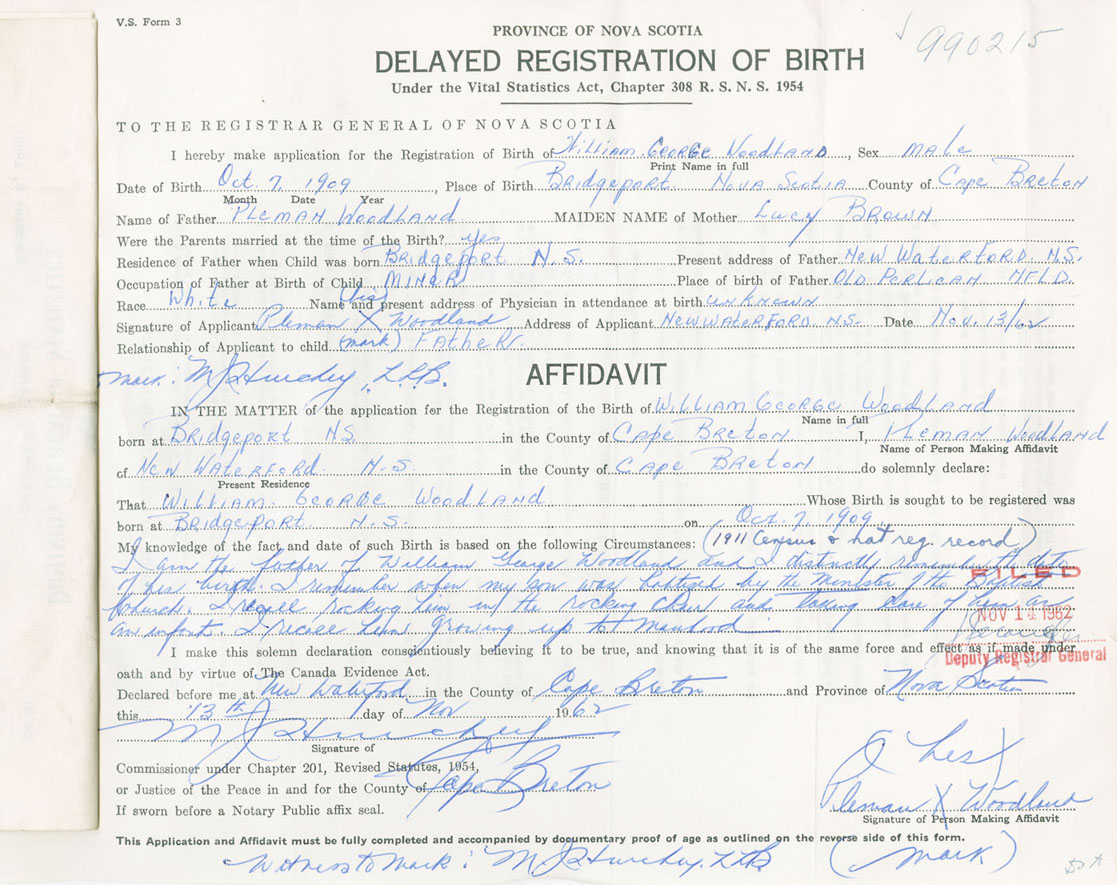 V.S. Form 3
PROVINCE OF NOVA SCOTIA
990215
DELAYED REGISTRATION OF BIRTH
Under the Vital Statistics Act, Chapter 308 R. S. N. S. 1954
TO THE REGISTRAR GENERAL OF NOVA SCOTIA
I hereby make application for the Registration of Birth of William George Woodland, Sex Male
Print Name in full
Date of Birth Oct. 7, 1909, Place of Birth Bridgeport Nova Scotia County of Cape Breton
Month Date Year
Name of Father Pleman Woodland MAIDEN NAME of Mother Lucy Brown
Were the Parents married at the time of the Birth? yes
Residence of Father when Child was born Bridgeport N.S. Present address of Father New Waterford. N.S.
Occupation of Father at Birth of Child Miner Place of birth of Father Old Perlican NFLD.
Race White Name and present address of Physician in attendance at birth unknown
his
Signature of Applicant Pleman X Woodland Address of Applicant New Waterford N.S. Date Nov. 13/62
Relationship of Applicant to child (mark) Father
mark: M J Hinchey, LLB.
AFFIDAVIT
IN THE MATTER of the application for the Registration of the Birth of William George Woodland
Name in full
born at Bridgeport NS. in the County of Cape Breton I, Pleman Woodland
Name of Person Making Affidavit
of New Waterford N.S. in the County of Cape Breton do solemnly declare:
Present Residence
That William George Woodland Whose Birth is sought to be registered was
born at Bridgeport N.S. on Oct. 7, 1909
My knowledge of the fact and date of such Birth is based on the following Circumstances: (1911 Census & nat reg. record)
I am the father of William George Woodland and I distinctly remember the date
of his birth. I remember when my son was baptised by the Minister of the
FILED
Church. I recall rocking him in the rocking chair and taking care of him as
NOV 14 1962
an infant. I recall him growing up to manhood.
Deputy Registrar General
I make this solemn declaration conscientiously believing it to be true, and knowing that it is of the same force and effect as if made under
oath and by virtue of The Canada Evidence Act.
Declared before me at New Waterford in the County of Cape Breton and Province of Nova Scotia
this 13th day of Nov 1962
M J Hinchey
Signature of
Commissioner under Chapter 201, Revised Statutes, 1954,
or Justice of the Peace in and for the County of Cape Breton
If sworn before a Notary Public affix seal.
his
Pleman X Woodland
Signature of Person Making Affidavit
This Application and Affidavit must be fully completed and accompanied by documentary proof of age as outlined on the reverse side of this form.
Witness to Mark: M J Hinchey, LLB (mark)